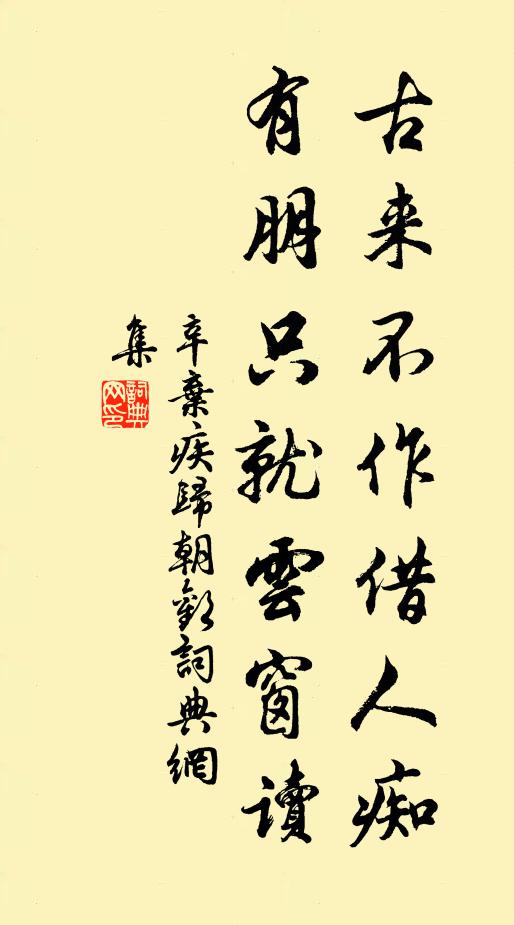 古来不作借人痴
有朋只就雲窗讀
辛棄疾歸朝歡詞典網
集
詞典網印